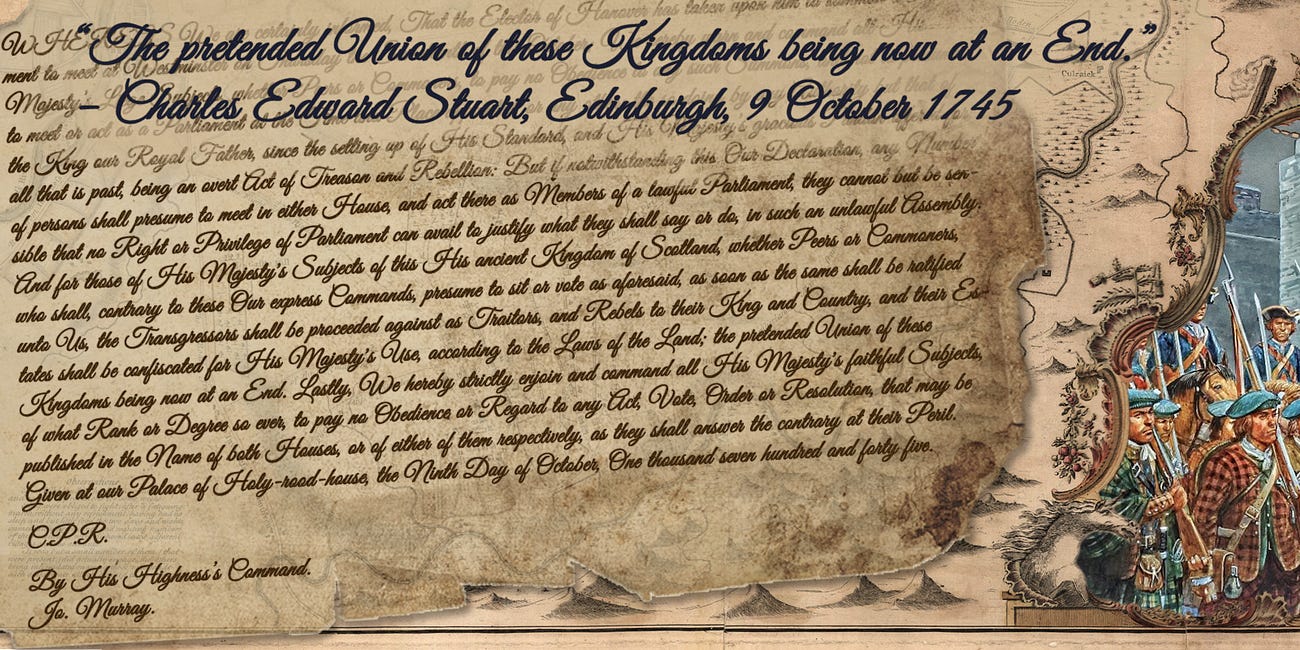 “The pretended Union of these Kingdoms being now at an End.”
– Charles Edward Stuart, Edinburgh, 9 October 1745
That the Elector of Hanover has taken upon him to summon
ment to meet at Westminster on
Majesty's
to meet or act as a Parliament
the King our Royal Father, since the setting up of His Standard, and His Majesty's gracious
all that is past, being an overt Act of Treason and Rebellion: But if notwithstanding this Our Declaration, any Number
of persons shall presume to meet in either House, and act there as Members of a lawful Parliament, they cannot but be sen-
sible that no Right or Privilege of Parliament can avail to justify what they shall say or do, in such an unlawful Assembly.
And for those of His Majesty's Subjects of this His ancient Kingdom of Scotland, whether Peers or Commoners,
who shall, contrary to these Our express Commands, presume to sit or vote as aforesaid, as soon as the same shall be ratified
unto Us, the Transgressors shall be proceeded against as Traitors, and Rebels to their King and Country, and their Es-
tates shall be confiscated for His Majesty's Use, according to the Laws of the Land; the pretended Union of these
Kingdoms being now at an End. Lastly, We hereby strictly enjoin and command all His Majesty's faithful Subjects,
of what Rank or Degree so ever, to pay no Obedience or Regard to any Act, Vote, Order or Resolution, that may be
published in the Name of both Houses, or of either of them respectively, as they shall answer the contrary at their Peril.
Given at our Palace of Holy-rood-house, the Ninth Day of October, One thousand seven hundred and forty five.
C.P.R.
By His Highness's Command.
Jo. Murray.
Culraick